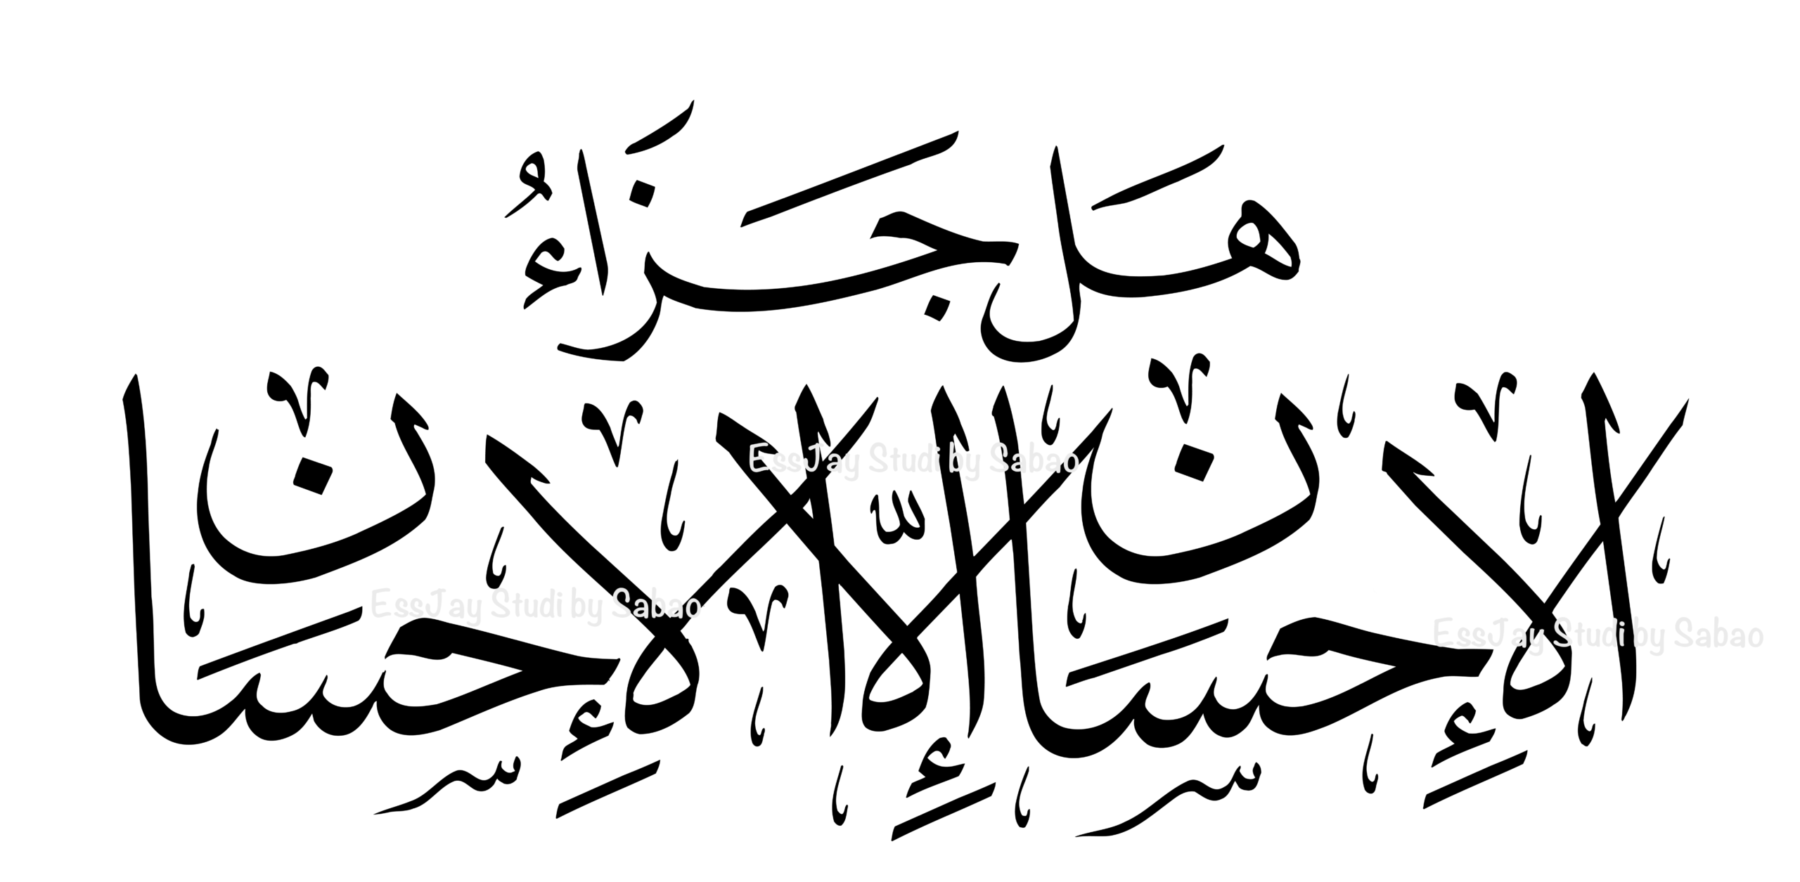 هَل جَزَاءُ
الإِحسَان إِلَّا الإِحسَان
EssJay Studi by Sabao
EssJay Studi by Sabao
EssJay Studi by Sabao